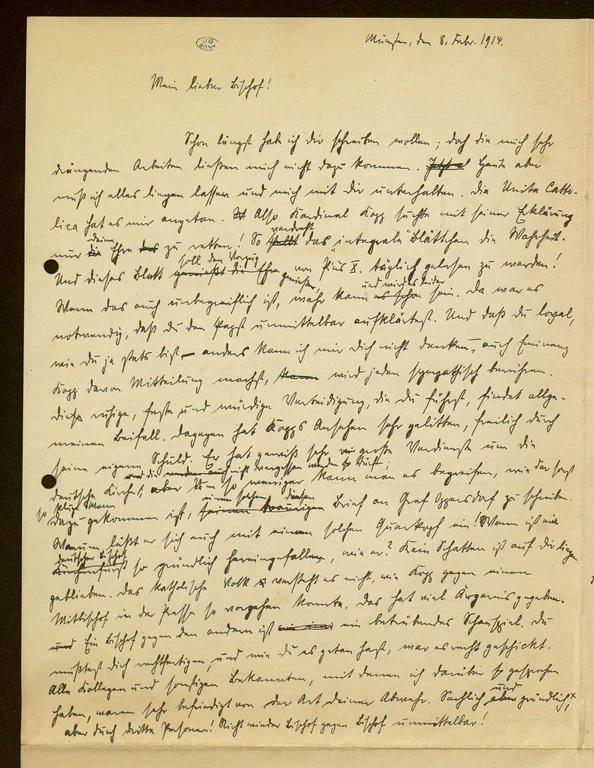 UB BONN
München, den 8. Febr. 1914.
Mein lieber Bischof!
Schon längst hab ich dir schreiben wollen; doch die mich sehr
drängenden Arbeiten ließen mich nicht dazu kommen. Heute aber
muß ich alles liegen lassen und mich mit dir unterhalten. Die Unita Catto-
lica hat es mir angetan. Also Kardinal Kopp suchte mit seiner Erklärung
nur deine Ehre zu retten! So verdreht das integrale Blättchen die Wahrheit.
Und dieses Blatt soll den Vorzug genießen, von Pius X. täglich gelesen zu werden!
Wenn das auch unbegreiflich ist, wahr kann es schon sein. und wird es leider Da war es
notwendig, daß du den Papst unmittelbar aufklärtest. Und daß du loyal,
wie du ja stets bist – anders kann ich mir dich nicht denken –, auch Eminenz
Kopp davon Mitteilung machst, wird jeden sympathisch berühren.
Diese ruhige, feste und würdige Verteidigung, die du führst, findet allge-
meinen Beifall. Dagegen hat Kopps Ansehen sehr gelitten, freilich durch
seine eigene Schuld. Er hat gewiß sehr große Verdienste um die
deutsche Kirche, und die nicht vergessen werden dürfen;
aber um so weniger kann man es begreifen, wie der fast
so kluge Mann
dazu gekommen ist, einen solchen Brief an Graf Oppersdorf zu schreiben.
Warum läßt er sich auch mit einem solchen Querkopf ein! Wann ist ein
deutscher Bischof so gründlich hereingefallen, wie er? Kein Schatten ist auf dir liegen
geblieben. Das katholische Volk versteht es nicht, wie Kopp gegen einen
Mitbischof in der Presse so vorgehen konnte. Das hat viel Ärgernis gegeben.
Ein Bischof gegen den andern ist ein betrübendes Schauspiel. Du
mußtest dich rechtfertigen, und wie du es getan hast, war es recht geschickt.
Alle Kollegen und sonstigen Bekannten, mit denen ich darüber gesprochen
haben, waren sehr befriedigt von der Art deiner Abwehr. Sachlich und gründlich,
aber durch dritte Personen! Nicht wieder Bischof gegen Bischof unmittelbar!